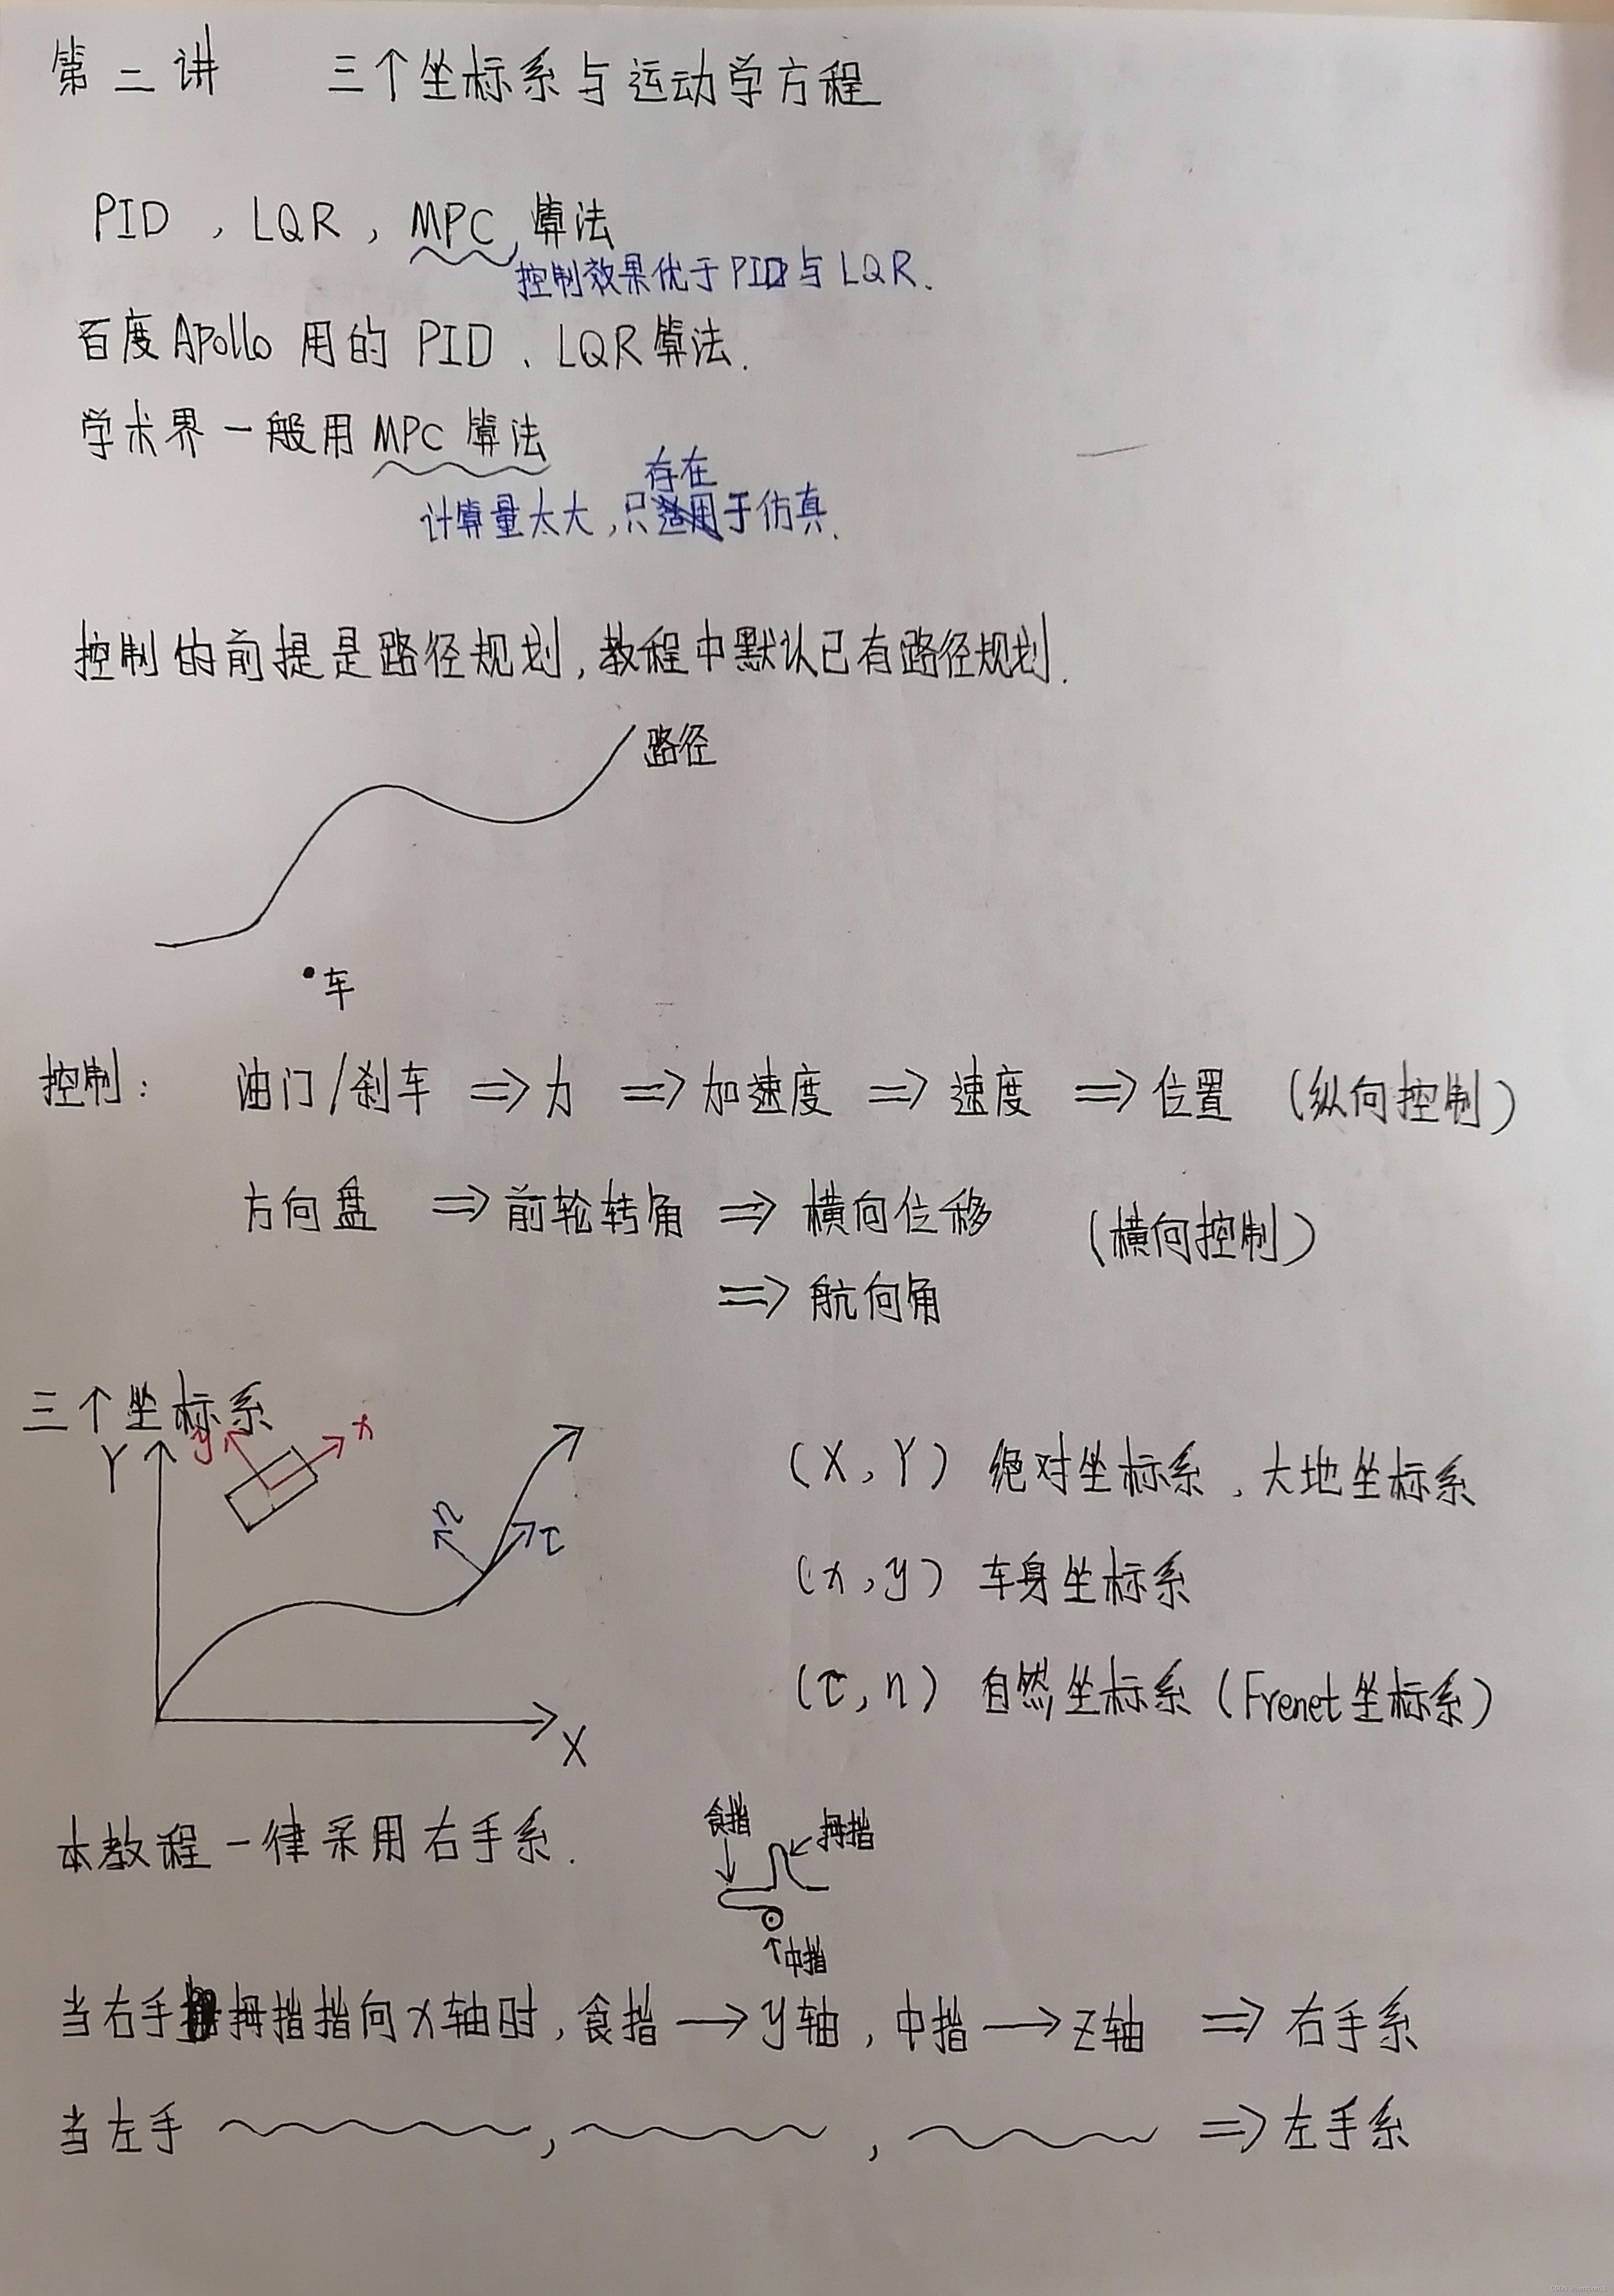 第二讲 三个坐标系与运动学方程
PID , LQR , MPC 算法
控制效果优于PID与LQR.
百度Apollo 用的 PID 、LQR算法.
学术界一般用MPC 算法
存在
计算量太大,只适用于仿真.
控制的前提是路径规划,教程中默认已有路径规划.
路径
车
控制: 油门/刹车 => 力 => 加速度 => 速度 => 位置 (纵向控制)
方向盘 => 前轮转角 => 横向位移 (横向控制)
=> 航向角
三个坐标系
Y y x
n τ
X
(X,Y) 绝对坐标系、大地坐标系
(x,y) 车身坐标系
(τ,n) 自然坐标系(Frenet坐标系)
本教程一律采用右手系.
食指 拇指
中指
当右手拇指指向x轴时,食指→y轴,中指→z轴 => 右手系
当左手 , , => 左手系